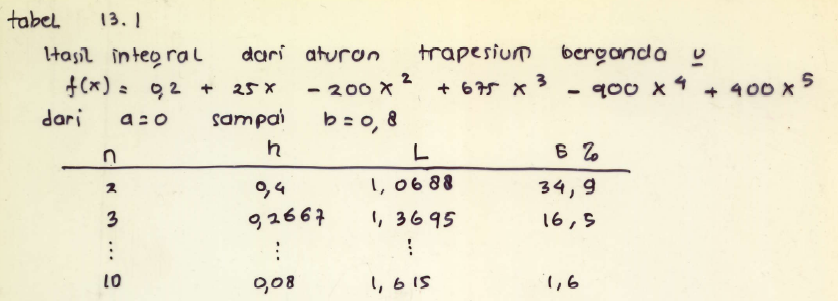 tabel 13.1
Hasil integral dari aturan trapesium berganda u
f(x) = 0,2 + 25x - 200x² + 675x³ - 900x⁴ + 400x⁵
dari a=0 sampai b=0,8
n h L ε %
2 0,4 1,0688 34,9
3 0,2667 1,3695 16,5
⋮ ⋮ ⋮
10 0,08 1,615 1,6